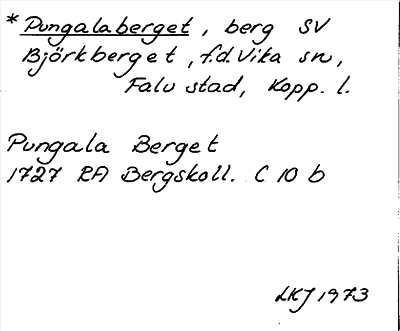 * Pungalaberget, berg SV
Björkberget, f.d. Vika sn,
Falu stad, Kopp. l.
Pungala Berget
1727 RA Bergskoll. C 10 b
LKJ 1973